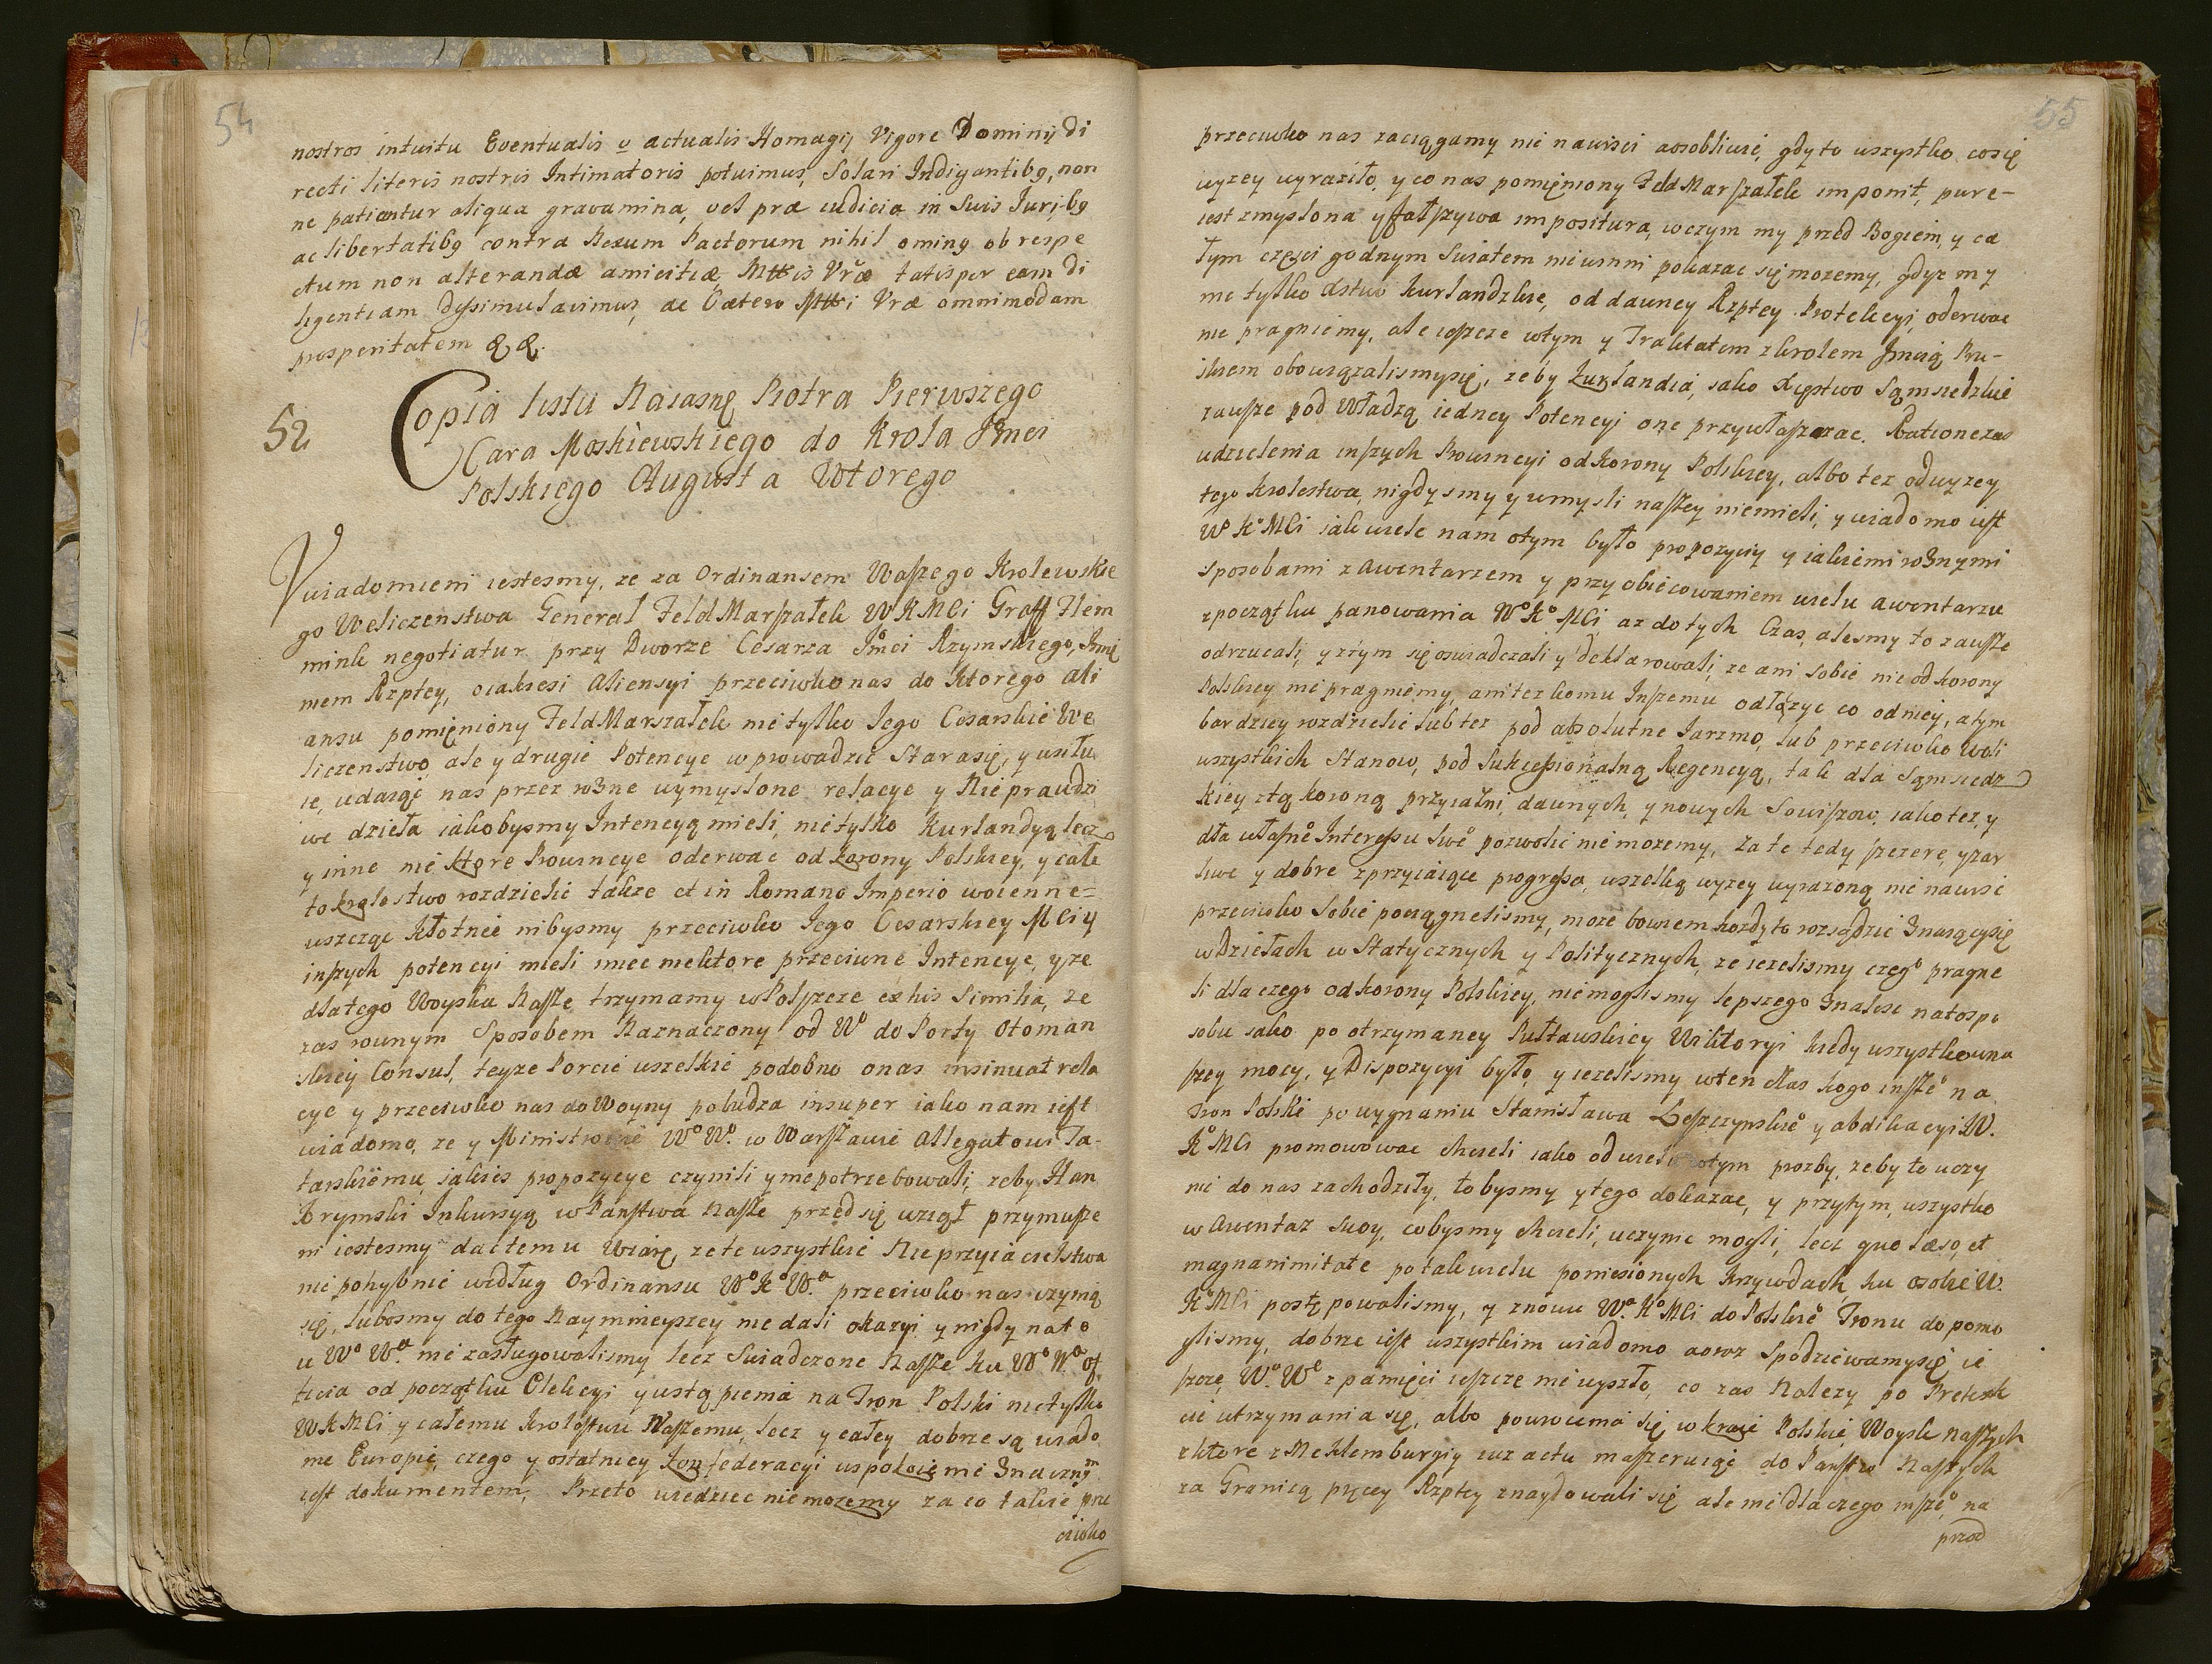 54
nostros intuitu Eventualis v actualis Homagij Vigore Dominij di
recti literis nostris Intimatoris potuimus, Solari Indigantibg, non
ne patiantur aliqua gravamina, vel præ iudicia in Suis Juribg
ac libertatibg contra Nexum Pactorum nihil oming ob respe
ctum non alterandæ amicitiæ Mttis Vræ tatisper eam di
ligentiam dissimulavimus, ac Cætero Mtti Vræ omnimodam
prosperitatem & &.
52
Copia listu Naiasnę Piotra Pierwszego
Cara Moskiewskiego do Krola Jmci
Polskiego Augusta Wtorego
Vwiadomieni iestesmy, ze za Ordinansem Waszego Krolewskie
go Weliczenstwa General Feld Marszałek WKMCi Graff Flem
mink negotiatur przy Dworze Cesarza Jmci Rzymskiego, Imię
niem Rzptey, oiakiesi Aliensyi przeciwko nas do ktorego Ali
ansu pomięniony Feld Marszałek nietylko Jego Cesarskie We
liczenstwo ale y drugie Potencye wprowadzic Starasię, y usiłu
ie, udaiąc nas przez rożne wymyslone relacye y Nieprawdzi
we dzieła iakobysmy Intencyą mieli, nietylko Kurlandyą lecz
y inne nie ktore Prowincye oderwac od Korony Polskiey, y całe
to krolestwo rozdzielic takze et in Romano Imperio woienne=
wszcząc kłotnie nibysmy przeciwko Jego Cesarskiey MCi y
inszych potencyi mieli miec niektore przeciwne Intencye, y ze
dlatego Woyska Nasze trzymamy w Polszcze ex his Similia, ze
zas rownym Sposobem Naznaczony od Wo do Porty Otoman
skiey Consul, teyze Porcie wszelkie podobno onas insinuat rela
cye y przeciwko nas do Woyny pobudza insuper iako nam iest
wiadomo, ze y Ministrowie Wo Wo. w Warszawie Allegatowi Ta-
tarskiemu, iakies propozycye czynili y niepotrzebowali, zeby Han
Krymski Inkursyą w Panstwa Nasze przed się wziął przymusze
ni iestesmy dac temu Wiarę, ze te wszystkie Nieprzyiacielstwa
nie pohybnie według Ordinansu Wo Ko Wa. przeciwko nas czynią
się, lubosmy do tego Naymnieyszey nie dali okazyi y nigdy nato
u Wo Wa. nie zasługowalismy lecz Swiadczone Nasze ku Wo Wa of
ticia od początku Elekcyi y ustąpienia na Tron Polski nietylko
WKMCi y całemu Krolestwu Naszemu, lecz y całey dobrze są wiado
me Europie, czego y ostatniey Konfederacyi uspokoięnie Znacznym
iest dokumentem, Przeto wiedziec niemozemy za co takie prze
ciwko
55
przeciwko nas zaciągamy nie nawisci aosobliwie, gdy to wszystko cosię
wyzey wyraziło, y co nas pomięniony Feld Marszałek imponit, pure-
iest zmyslona y fałszywa impositura, wczym my przed Bogiem, y ca
łym częsci godnym Swiatem niewinni pokazac się mozemy, gdyz my
nie tylko Xstwo Kurlandzkie, od dawney Rzptey Protekcyi, oderwac
nie pragniemy, ale ieszcze wtym y Traktatem z krolem Jmcią Pru-
skiem obowiązalismysię, zeby Kurlandia, iako Xięstwo Sąmsiedzkie
zawsze pod Władzą iedney Potencyi one przywłaszczac. Ratione zas
udzielenia inszych Prowincyi od Korony Polskiey, albo tez od wyzey
tego Krolestwa, nigdysmy y wmysli naszey niemieli, y wiadomo iest
Wo Ko MCi iak wiele nam otym było propozycyi y iakiemi rożnymi
sposobami z awentarzem y przyobiecowaniem wielu awentarzu
zpoczątku panowania Wo Ko MCi, az dotych Czas, alesmy to zawsze
odrzucali, y ztym się oswiadczali y deklarowali, ze ani sobie nic od korony
Polskiey nie pragniemy, ani tez komu Inszemu odłączyc co od niey, atym
bardziey rozdzielic lub tez pod absolutne Jarzmo, lub przeciwko Woli
wszystkich Stanow, pod Sukcessionalną Regencyą, tak dla Sąmsiedz
kiey ztą koroną przyiazni, dawnych, y nowych Sowiszow, iako tez y
dla własne Interessu Swe pozwolic nie mozemy, Za te tedy szczere, y zar
liwe y dobre zprzyiaiące progressa, wszelką wyzey wyrazoną nie nawisc
przeciwko Sobie pociągnelismy, moze bowiem kozdy to rozsądzic Znaiącysię
wDziełach w Statycznych y Politycznych, ze iezelismy czego pragne
li dla czego od korony Polskiey, niemoglismy lepszego Znalesc natospo
sobu iako po otrzymaney Pułtawskiey Wiktoryi kiedy wszystko w na
szey mocy, y Dispozycyi było, y iezelismy wten Czas kogo insze na
Tron Polski po wygnaniu Stanisława Leszczynskie y abdikacyi W.
Ko MCi promowowac chcieli iako od wielu otym prozby, zeby to uczy
nic do nas zachodziły, tobysmy y tego dokazac, y przytym, wszystko
w Awentaz swoy, cobysmy chcieli, uczynic mogli, lecz quo læso, et
magnanimitate po tak wielu poniesionych krzywdach, ku osobie W.
Ko MCi postępowalismy, y znowu Wa. Ko MCi do Polskie Tronu dopomo
glismy, dobrze iest wszystkim wiadomo aoraz Spodziewamysię, ie
szcze, Wo. We z pamięci ieszcze nie wyszło, co zas Nalezy po Pretenk
cie utrzymania się, albo powrocenia się w kraie Polskie, Woysk naszych
ktore z Meklemburgiy iuz actu maszeruiąc do Panstw Naszych
za Granicą pręcey Rzptey znaydowali się ale nie dla czego insze, na
przod